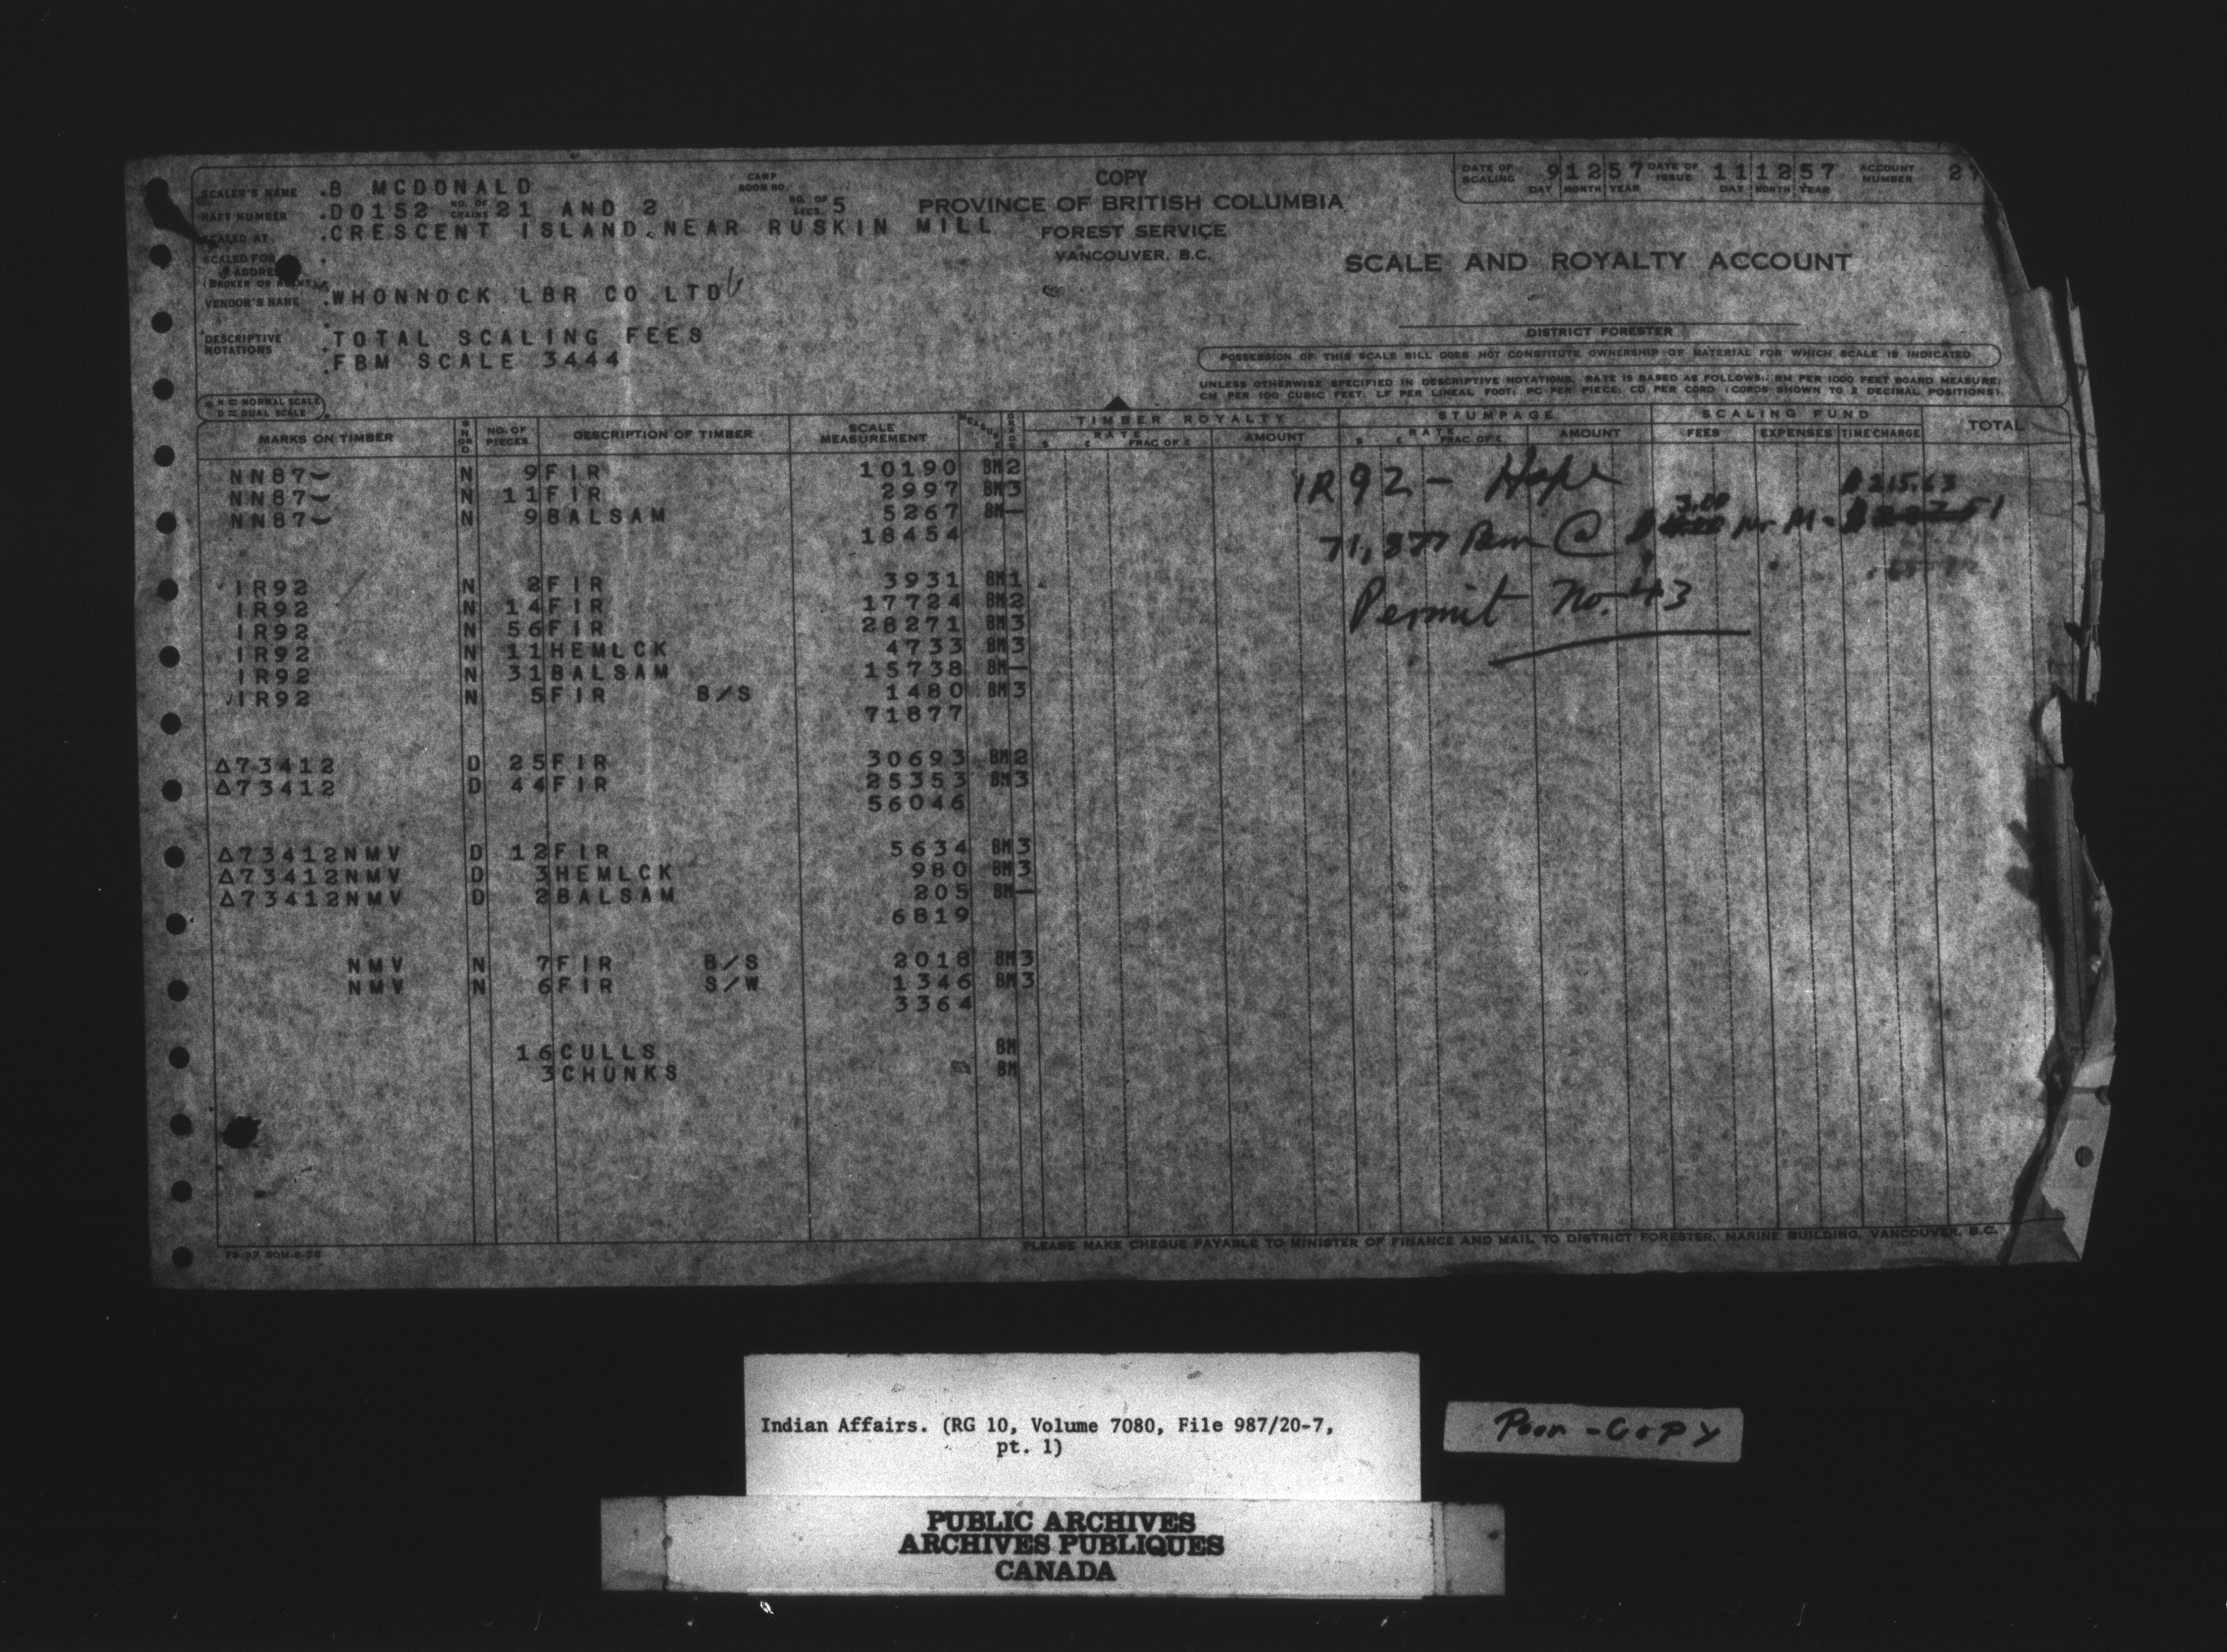 SCALER'S NAME . B MCDONALD CAMP BOOM NO. COPY DATE OF SCALING 9 12 57 DATE OF ISSUE 11 12 57 ACCOUNT NUMBER
DAY MONTH YEAR DAY MONTH YEAR
RAFT NUMBER . D0152 NO. OF CHAINS 21 AND 2 NO. OF SECS. 5 PROVINCE OF BRITISH COLUMBIA
SCALED AT . CRESCENT ISLAND. NEAR RUSKIN MILL FOREST SERVICE
VANCOUVER, B.C.
SCALED FOR
& ADDRESS
(BROKER OR AGENT)
SCALE AND ROYALTY ACCOUNT
VENDOR'S NAME . WHONNOCK LBR CO LTD
DISTRICT FORESTER
DESCRIPTIVE NOTATIONS TOTAL SCALING FEES
FBM SCALE 3444
POSSESSION OF THIS SCALE BILL DOES NOT CONSTITUTE OWNERSHIP OF MATERIAL FOR WHICH SCALE IS INDICATED
UNLESS OTHERWISE SPECIFIED IN DESCRIPTIVE NOTATIONS, RATE IS BASED AS FOLLOWS:- BM PER 1000 FEET BOARD MEASURE;
CM PER 100 CUBIC FEET; LF PER LINEAL FOOT; PC PER PIECE; CD PER CORD (CORDS SHOWN TO 2 DECIMAL POSITIONS).
N = NORMAL SCALE
D = DUAL SCALE
TIMBER ROYALTY STUMPAGE SCALING FUND
MARKS ON TIMBER N OR D NO. OF PIECES DESCRIPTION OF TIMBER SCALE MEASUREMENT MEASURE GRADE $ ¢ RATE FRAC OF ¢ AMOUNT $ ¢ RATE FRAC OF ¢ AMOUNT FEES EXPENSES TIME CHARGE TOTAL
NN87 N 9 FIR 10190 BM 2
NN87 N 11 FIR 2997 BM 3
NN87 N 9 BALSAM 5267 BM —
18454
IR92 - Hope
$215.63
3.00
71,877 Bm @ $ per M - $
Permit No. 43
IR92 N 2 FIR 3931 BM 1
IR92 N 14 FIR 17724 BM 2
IR92 N 56 FIR 28271 BM 3
IR92 N 11 HEMLCK 4733 BM 3
IR92 N 31 BALSAM 15738 BM —
IR92 N 5 FIR B/S 1480 BM 3
71877
△73412 D 25 FIR 30693 BM 2
△73412 D 44 FIR 25353 BM 3
56046
△73412NMV D 12 FIR 5634 BM 3
△73412NMV D 3 HEMLCK 980 BM 3
△73412NMV D 2 BALSAM 205 BM —
6819
NMV N 7 FIR B/S 2018 BM 3
NMV N 6 FIR S/W 1346 BM 3
3364
16 CULLS BM
3 CHUNKS BM
PLEASE MAKE CHEQUE PAYABLE TO MINISTER OF FINANCE AND MAIL TO DISTRICT FORESTER, MARINE BUILDING, VANCOUVER, B.C.
Indian Affairs. (RG 10, Volume 7080, File 987/20-7,
pt. 1)
Poor - Copy
PUBLIC ARCHIVES
ARCHIVES PUBLIQUES
CANADA